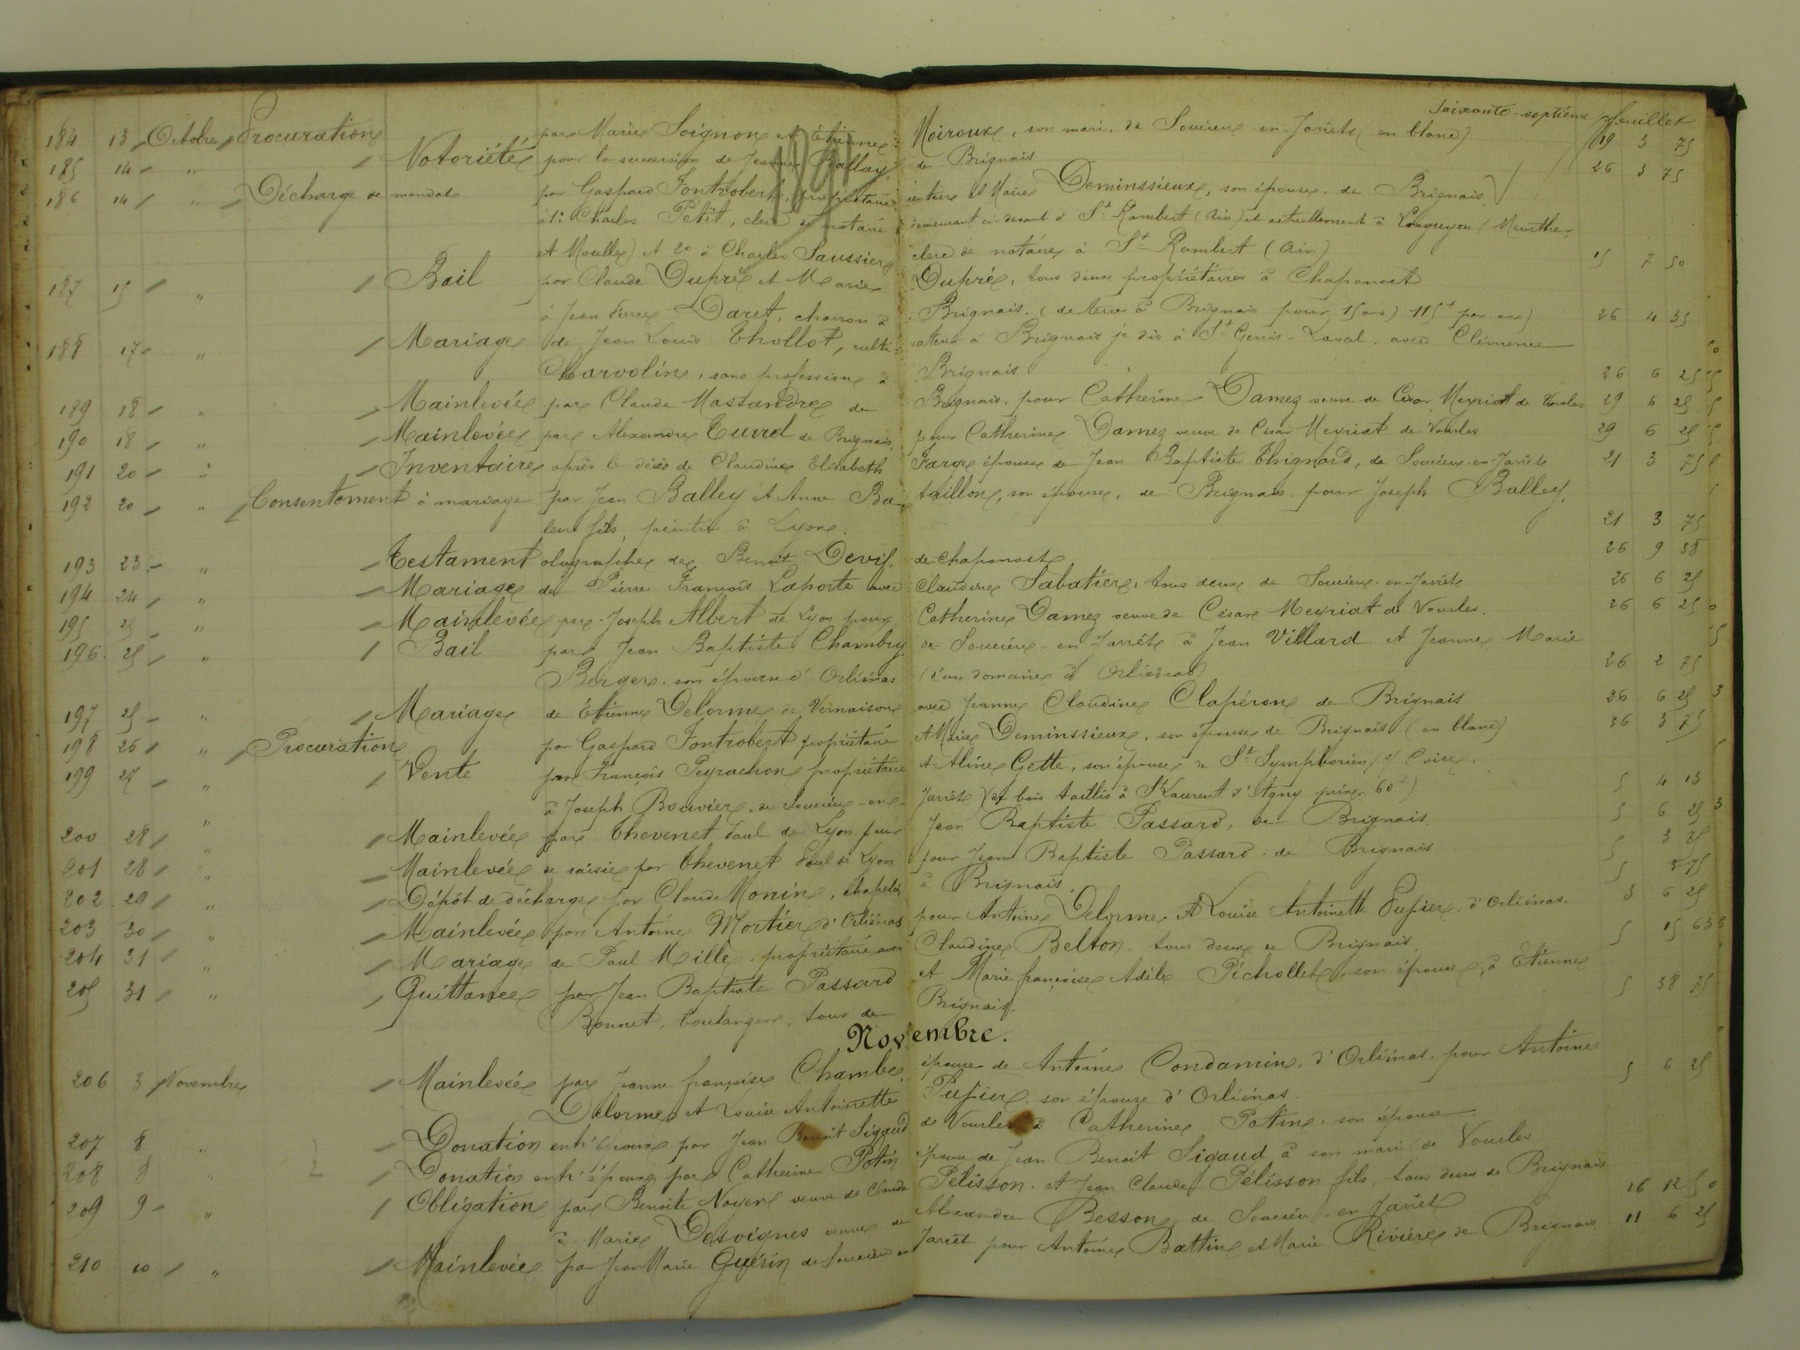 Soixante-septième feuillet
184 13 Octobre Procuration par Marie Soignon et Étienne Moiroux, son mari, de Soucieu-en-Jarrêt (en blanc) 19 3 75
185 14 " Notoriété pour la succession de Jeanne Ballay, de Brignais 26 3 75
186 14 " Décharge de mandat par Gaspard Fontrobert, propriétaire rentier et Marie Deminssieux, son épouse, de Brignais
à 1° Charles Petit, clerc de notaire demeurant ci-devant à St Rambert (Ain) et actuellement à Longuyon (Meurthe-
et Moselle) et 2° à Charles Saussier clerc de notaire à St Rambert (Ain) 15 7 50
187 15 " Bail par Claude Dupré et Marie Dupré, tous deux propriétaires à Chaponost
à Jean Pierre Daret, charron à Brignais. (de terre à Brignais pour 15 ans) 115f par an) 26 4 35
188 17 " Mariage de Jean Louis Thollot, culti- vateur à Brignais je dis à St Genis-Laval, avec Clémence
Charvolin, sans profession à Brignais 26 6 25
189 18 " Mainlevée par Claude Massandre de Brignais, pour Catherine Damez veuve de César Meyriat de Vourles 29 6 25
190 18 " Mainlevée par Alexandre Turrel de Brignais, pour Catherine Damez veuve de César Meyriat de Vourles 29 6 25
191 20 " Inventaire après le décès de Claudine Elisabeth Farge épouse de Jean Baptiste Thignard, de Soucieu-en-Jarrêt 21 3 75
192 20 " Consentement à mariage par Jean Balley et Anne Ba- taillon, son épouse, de Brignais pour Joseph Balley,
leur fils, peintre à Lyon. 21 3 75
193 23 " Testament olographe de Benoît Devif, de Chaponost 26 9 38
194 24 " Mariage de Pierre François Laporte avec Claudine Sabatier, tous deux de Soucieu-en-Jarrêt 26 6 25
195 25 " Mainlevée par Joseph Albert de Lyon pour Catherine Damez veuve de César Meyriat de Vourles. 26 6 25
196 25 " Bail par Jean Baptiste Chambry, de Soucieu-en-Jarrêt à Jean Villard et Jeanne Marie
Berger, son épouse d'Orliénas (d'un domaine à Orliénas) 26 2 75
197 25 " Mariage de Étienne Delorme de Vernaison avec Jeanne Claudine Clapéron de Brignais 26 6 25
198 26 " Procuration par Gaspard Fontrobert propriétaire et Marie Deminssieux, son épouse de Brignais (en blanc) 26 3 75
199 27 " Vente par François Peyrachon propriétaire et Aline Gette, son épouse de St Symphorien s/ Coise,
à Joseph Bouvier, de Soucieu-en- Jarrêt (de bois taillis à St Laurent d'Agny prix 60f) 5 4 13
200 28 " Mainlevée par Thevenet Paul de Lyon pour Jean Baptiste Passard, de Brignais 5 6 25
201 28 " Mainlevée de saisie par Thevenet Paul de Lyon pour Jean Baptiste Passard de Brignais 5 3 75
202 29 " Dépôt de décharge par Claude Monin, chapelier à Brignais. 5 3 75
203 30 " Mainlevée par Antoine Mortier d'Orliénas pour Antoine Delorme et Louise Antoinette Pupier d'Orliénas. 5 6 25
204 31 " Mariage de Paul Mille, propriétaire avec Claudine Belton, tous deux de Brignais. 5 15 63
205 31 " Quittance par Jean Baptiste Passard et Marie françoise Adèle Pichollet, son épouse, à Étienne
Bonnet, boulanger, tous de Brignais. 5 38 75
Novembre.
206 3 Novembre Mainlevée par Jeanne françoise Chambe, épouse de Antoine Condamin, d'Orliénas, pour Antoine
Delorme et Louise Antoinette Pupier, son épouse d'Orliénas 5 6 25
207 8 " Donation entr'époux par Jean Benoît Sigaud de Vourles à Catherine Potin, son épouse
208 8 " Donation entr'époux par Catherine Potin épouse de Jean Benoît Sigaud à son mari de Vourles
209 9 " Obligation par Benoîte Noyer veuve de Claude Pélisson et Jean Claude Pélisson fils, tous deux de Brignais
à Marie Desvignes veuve de Alexandre Besson, de Soucieu-en-Jarrêt 26 12 50
210 10 " Mainlevée par Jean Marie Guérin de Soucieu en Jarrêt pour Antoine Battin et Marie Rivière de Brignais 11 6 25